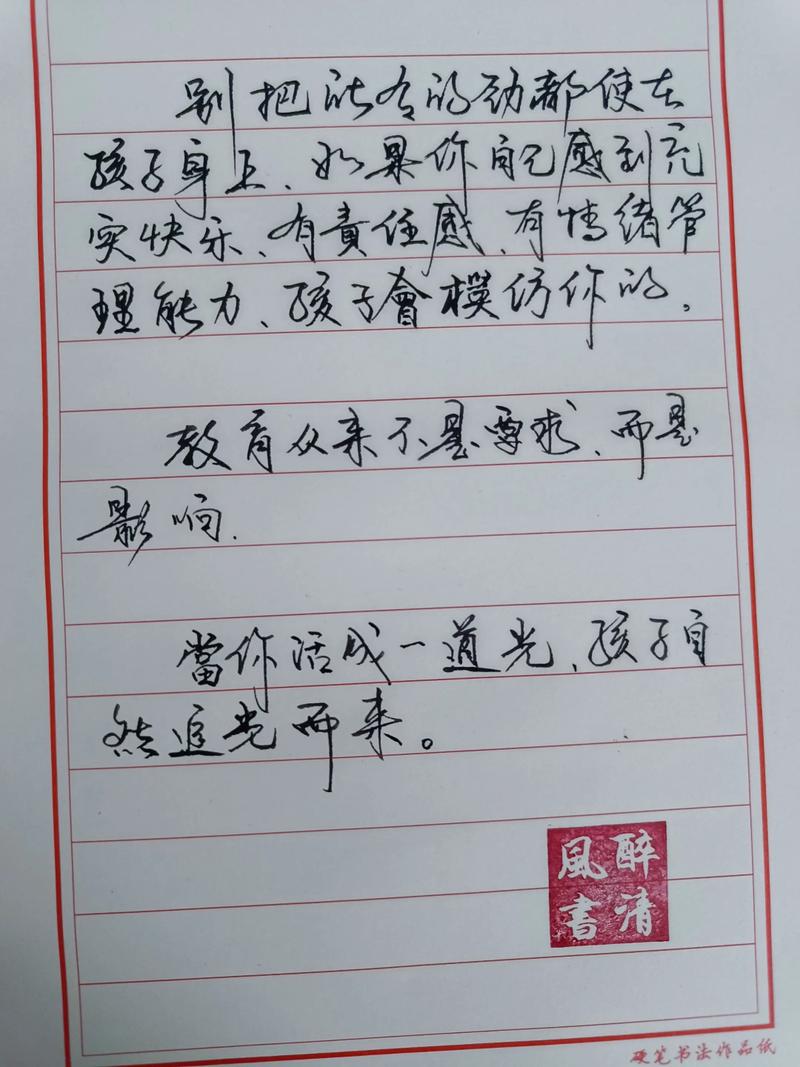 别把所有的劲都使在
孩子身上、如果你自己感到充
实快乐、有責任感、有情绪管
理能力、孩子會模仿你的。
教育从来不是要求、而是
影响.
當你活成一道光、孩子自
然追光而来。
醉清
風書
硬笔书法作品纸